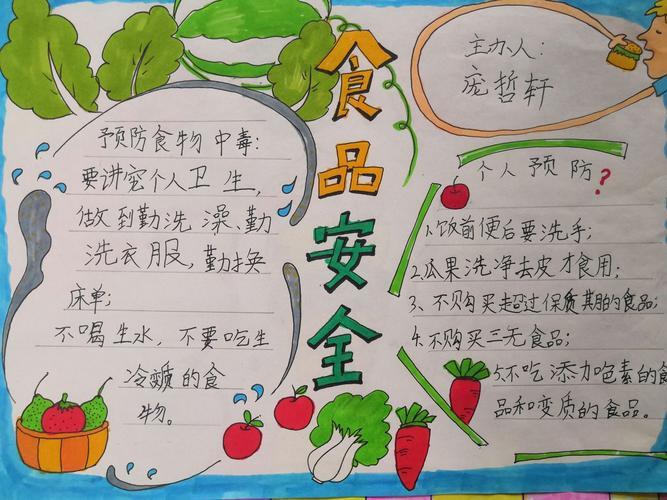 食品安全
主办人：
庞哲轩
预防食物中毒：
要讲究个人卫生，
做到勤洗澡、勤
洗衣服，勤换
床单；
不喝生水，不要吃生
冷变质的食
物。
个人预防？
1.饭前便后要洗手；
2.瓜果洗净去皮才食用；
3、不购买超过保质期的食品；
4.不购买三无食品；
5.不吃添加色素的食
品和变质的食品。